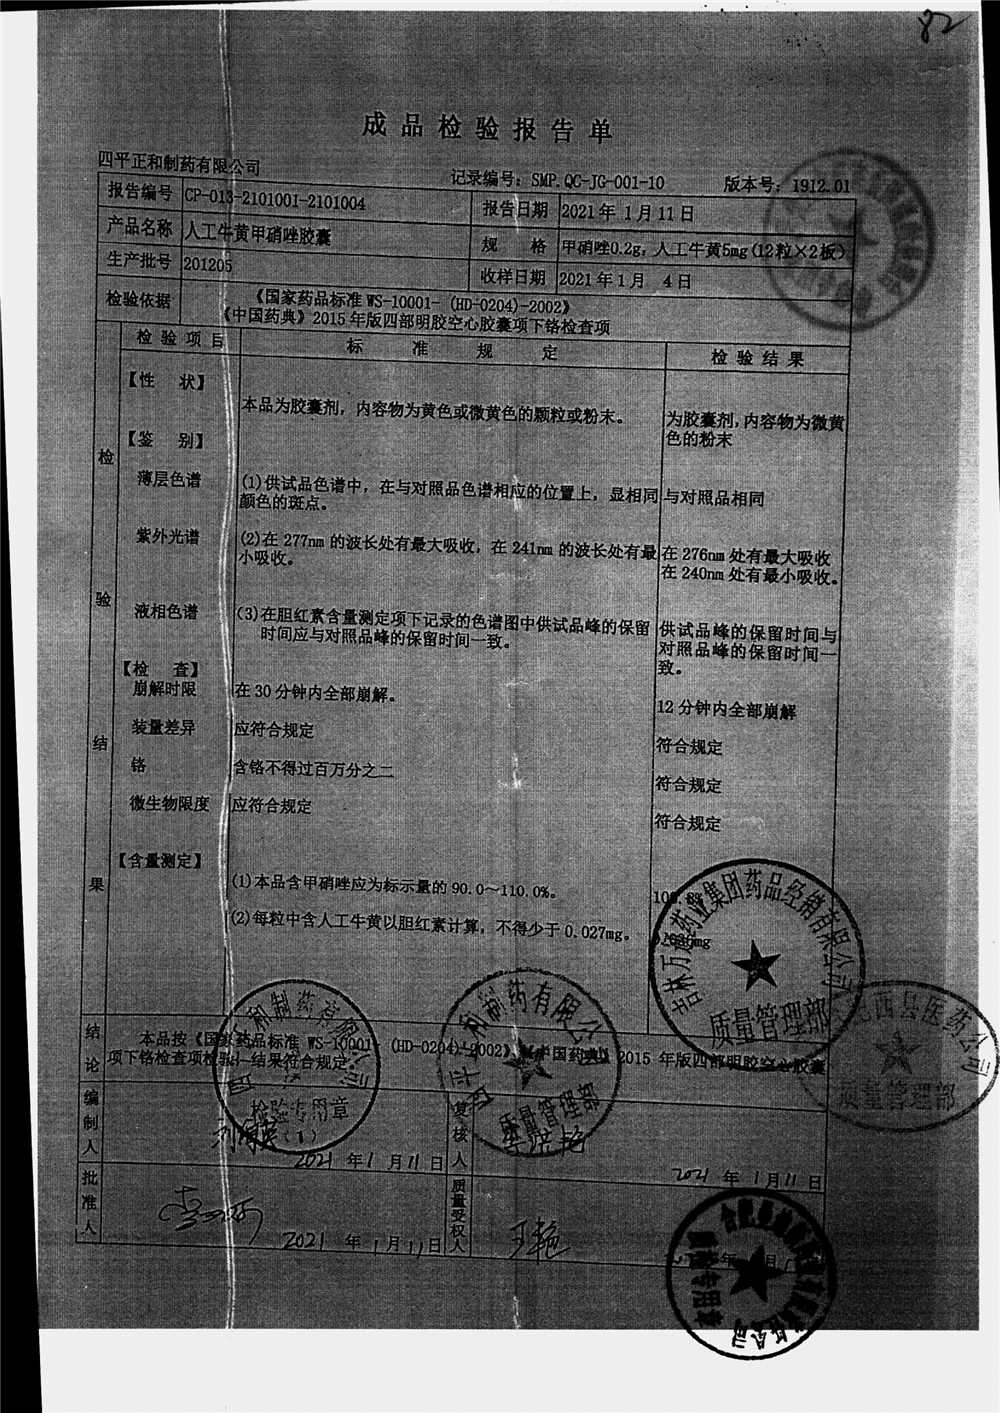 82
成品检验报告单
四平正和制药有限公司
记录编号：SMP.QC-JG-001-10 版本号：1912.01
报告编号 CP-013-2101001-2101004 报告日期 2021年 1月 11日
产品名称 人工牛黄甲硝唑胶囊 规 格 甲硝唑0.2g，人工牛黄5mg(12粒×2板)
生产批号 201205 收样日期 2021年 1月 4日
检验依据 《国家药品标准 WS-10001-（HD-0204)-2002》
《中国药典》2015年版四部明胶空心胶囊项下铬检查项
检验结果
检验项目 标准规定 检验结果
【性 状】
本品为胶囊剂，内容物为黄色或微黄色的颗粒或粉末。 为胶囊剂，内容物为微黄
色的粉末
【鉴 别】
薄层色谱 (1)供试品色谱中，在与对照品色谱相应的位置上，显相同 与对照品相同
颜色的斑点。
紫外光谱 (2)在 277nm 的波长处有最大吸收，在 241nm 的波长处有最 在 276nm 处有最大吸收
小吸收。 在 240nm 处有最小吸收。
液相色谱 (3)在胆红素含量测定项下记录的色谱图中供试品峰的保留 供试品峰的保留时间与
时间应与对照品峰的保留时间一致。 对照品峰的保留时间一
致。
【检 查】
崩解时限 在 30 分钟内全部崩解。 12 分钟内全部崩解
装量差异 应符合规定 符合规定
铬 含铬不得过百万分之二 符合规定
微生物限度 应符合规定 符合规定
【含量测定】
(1)本品含甲硝唑应为标示量的 90.0～110.0%。
(2)每粒中含人工牛黄以胆红素计算，不得少于 0.027mg。
吉林万通药业集团药品经销有限公司
质量管理部
结论 本品按《国家药品标准 WS-10001-（HD-0204)-2002》《中国药典》2015 年版四部明胶空心胶囊
项下铬检查项检验，结果符合规定
四平正和制药有限公司
检验专用章
(1)
四平正和制药有限公司
质量管理部
西县医药公司
质量管理部
编制人 2021 年 1 月 11 日 复核人 2021 年 1 月 11 日
批准人 2021 年 1 月 11 日 质量受权人 王艳 年 月